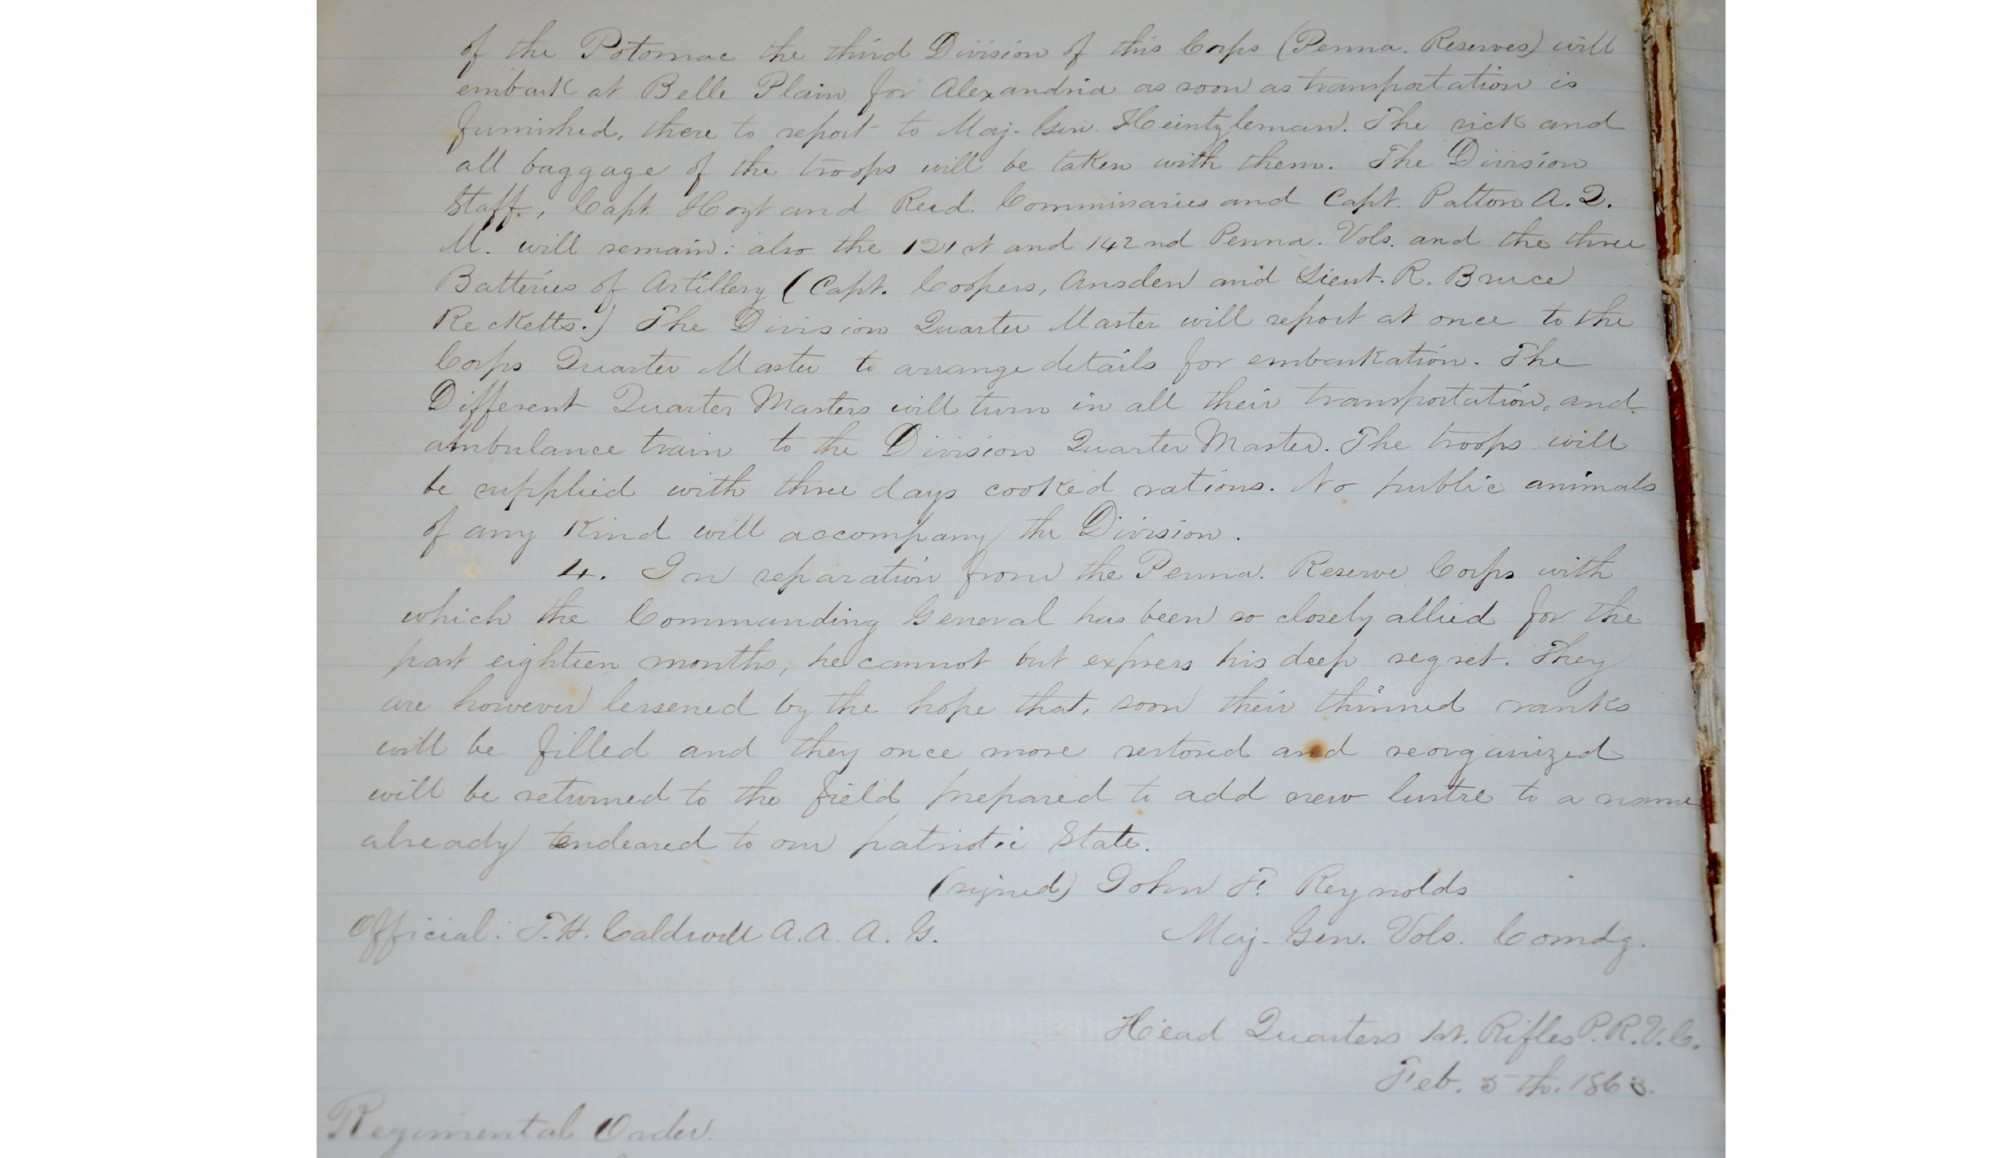 of the Potomac the third Division of this Corps (Penna. Reserves) will
embark at Belle Plain for Alexandria as soon as transportation is
furnished, there to report to Maj. Gen. Heintzleman. The sick and
all baggage of the troops will be taken with them. The Division
Staff, Capt. Hoyt and Reed. Commissaries and Capt. Patton A. Q.
M. will remain: also the 121st and 142nd Penna. Vols. and the three
Batteries of Artillery (Capt. Coopers, Amsden and Lieut. R. Bruce
Recketts.) The Division Quarter Master will report at once to the
Corps Quarter Master to arrange details for embarkation. The
Different Quarter Masters will turn in all their transportation, and
ambulance train to the Division Quarter Master. The troops will
be supplied with three days cooked rations. No public animals
of any kind will accompany the Division.
4. In separation from the Penna. Reserve Corps with
which the Commanding General has been so closely allied for the
past eighteen months, he cannot but express his deep regret. They
are however lessened by the hope that, soon their thinned ranks
will be filled and they once more restored and reorganized
will be returned to the field prepared to add new lustre to a name
already endeared to our patriotic State.
(signed) John F. Reynolds
Official: T. H. Caldwell A. A. A. G. Maj. Gen. Vols. Comdg.
Head Quarters 1st. Rifles P. R. V. C.
Feb. 5th. 1863.
Regimental Order.